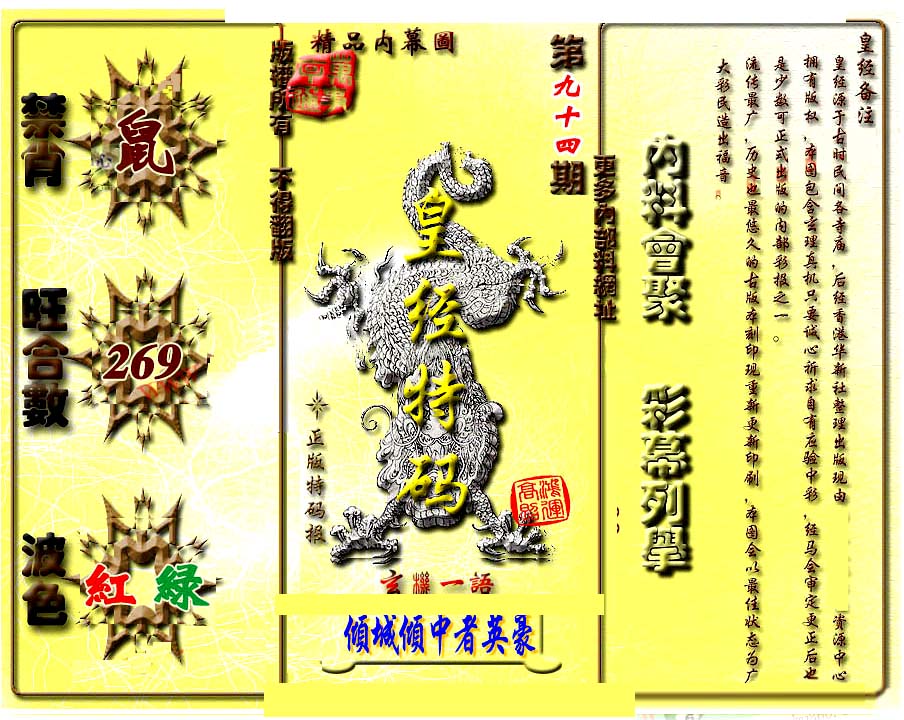 皇经备注
皇经源于古时民间各寺庙，后经香港华新社整理出版现由 资源中心
拥有版权，本图包含玄理真机只要诚心祈求自有应验中彩，经马会审定更正后也
是少数可正式出版的内部彩报之一。
流传最广，历史也最悠久的古版本刻印现重新更新印刷，本图会以最佳状态为广
大彩民造出福音
內料會聚
彩幕列舉
更多內部料網址
第九十四期
精品内幕圖
版權所有
不得翻版
皇经特码
正版特码报
鴻運
高照
玄機一語
傾城傾中者英豪
禁肖
鼠
旺合數
269
波色
紅 綠